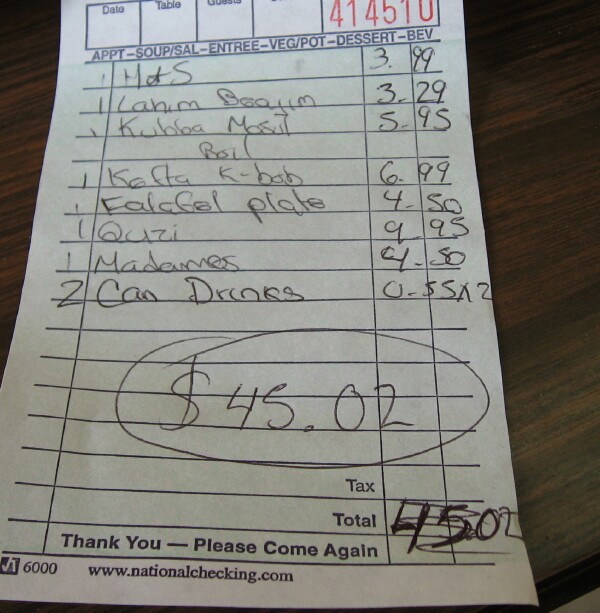 Date Table Guests
414510
APPT–SOUP/SAL–ENTREE–VEG/POT–DESSERT–BEV
1 H&S 3. 99
1 Lahim Beajim 3. 29
1 Kubba Mosil 5. 95
Boil
1 Kefta K-bob 6. 99
1 Falafel plate 4. 50
1 Quzi 9. 95
1 Madames 4. 50
2 Can Drinks 0. 55x2
$45.02
Tax
Total 45.02
Thank You — Please Come Again
6000 www.nationalchecking.com